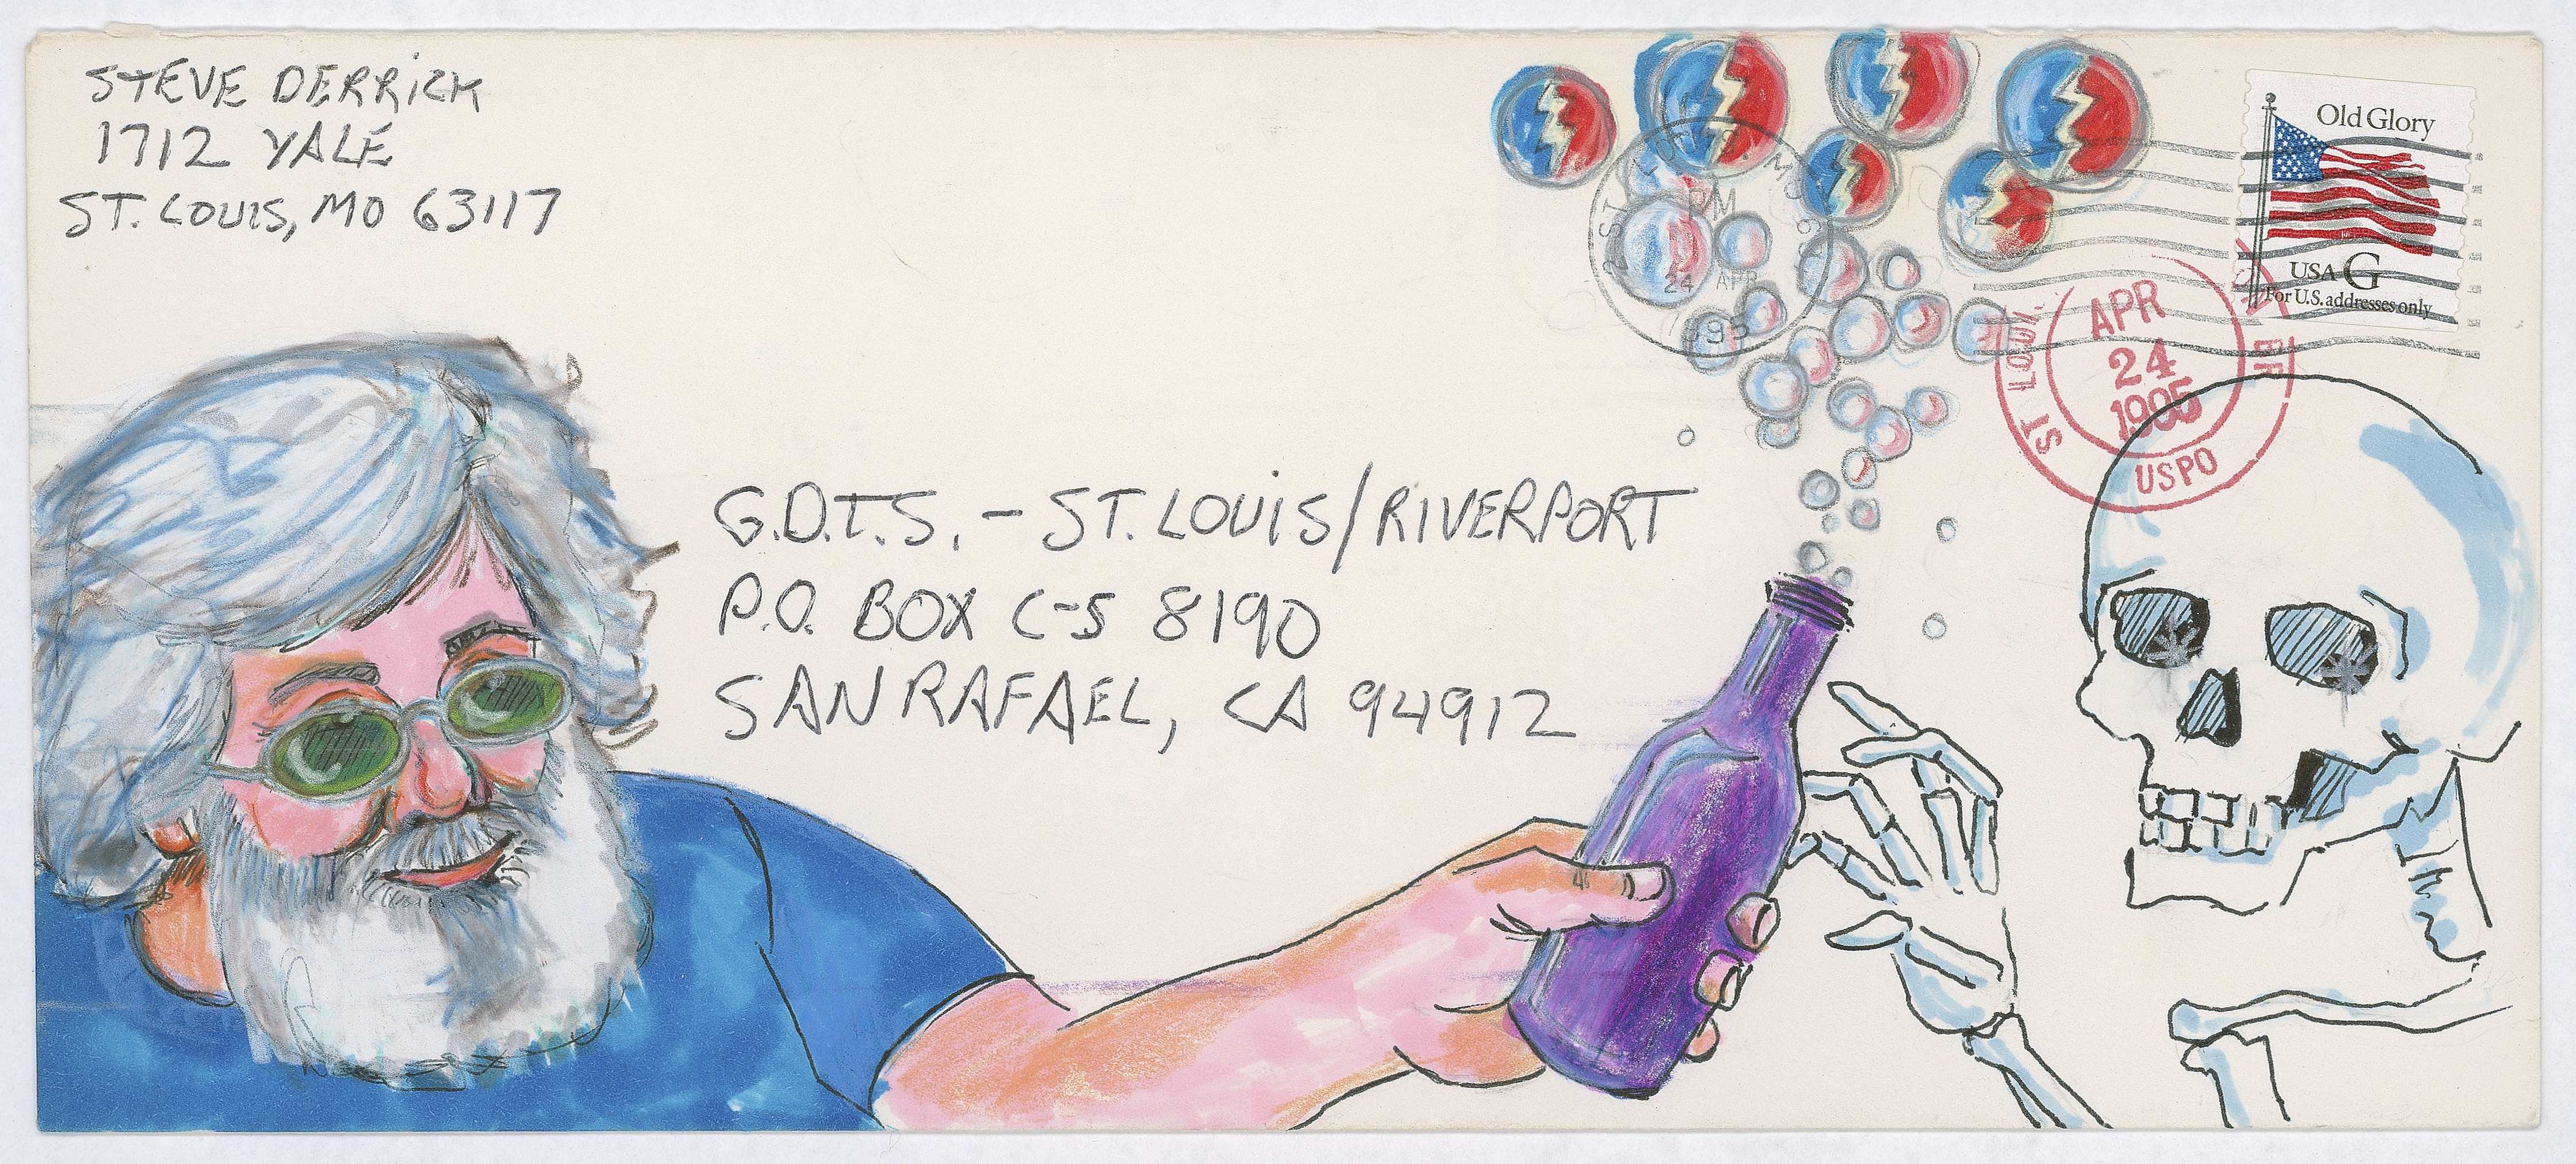 STEVE DERRICK
1712 YALE
ST. LOUIS, MO 63117
Old Glory
USA G
For U.S. addresses only
PM
24 APR
1995
ST LOUI
APR
24
1995
USPO
G.D.T.S. - ST. LOUIS/RIVERPORT
P.O. BOX C-S 8190
SAN RAFAEL, CA 94912